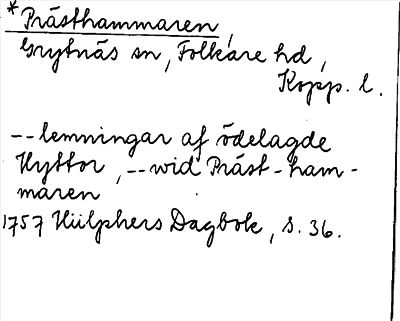 *Prästhammaren,
Grytnäs sn, Folkare hd,
Kopp. l.
-- lemningar af ödelagde
Hyttor, -- wid Präst-ham-
maren
1757 Hülphers Dagbok, s. 36.